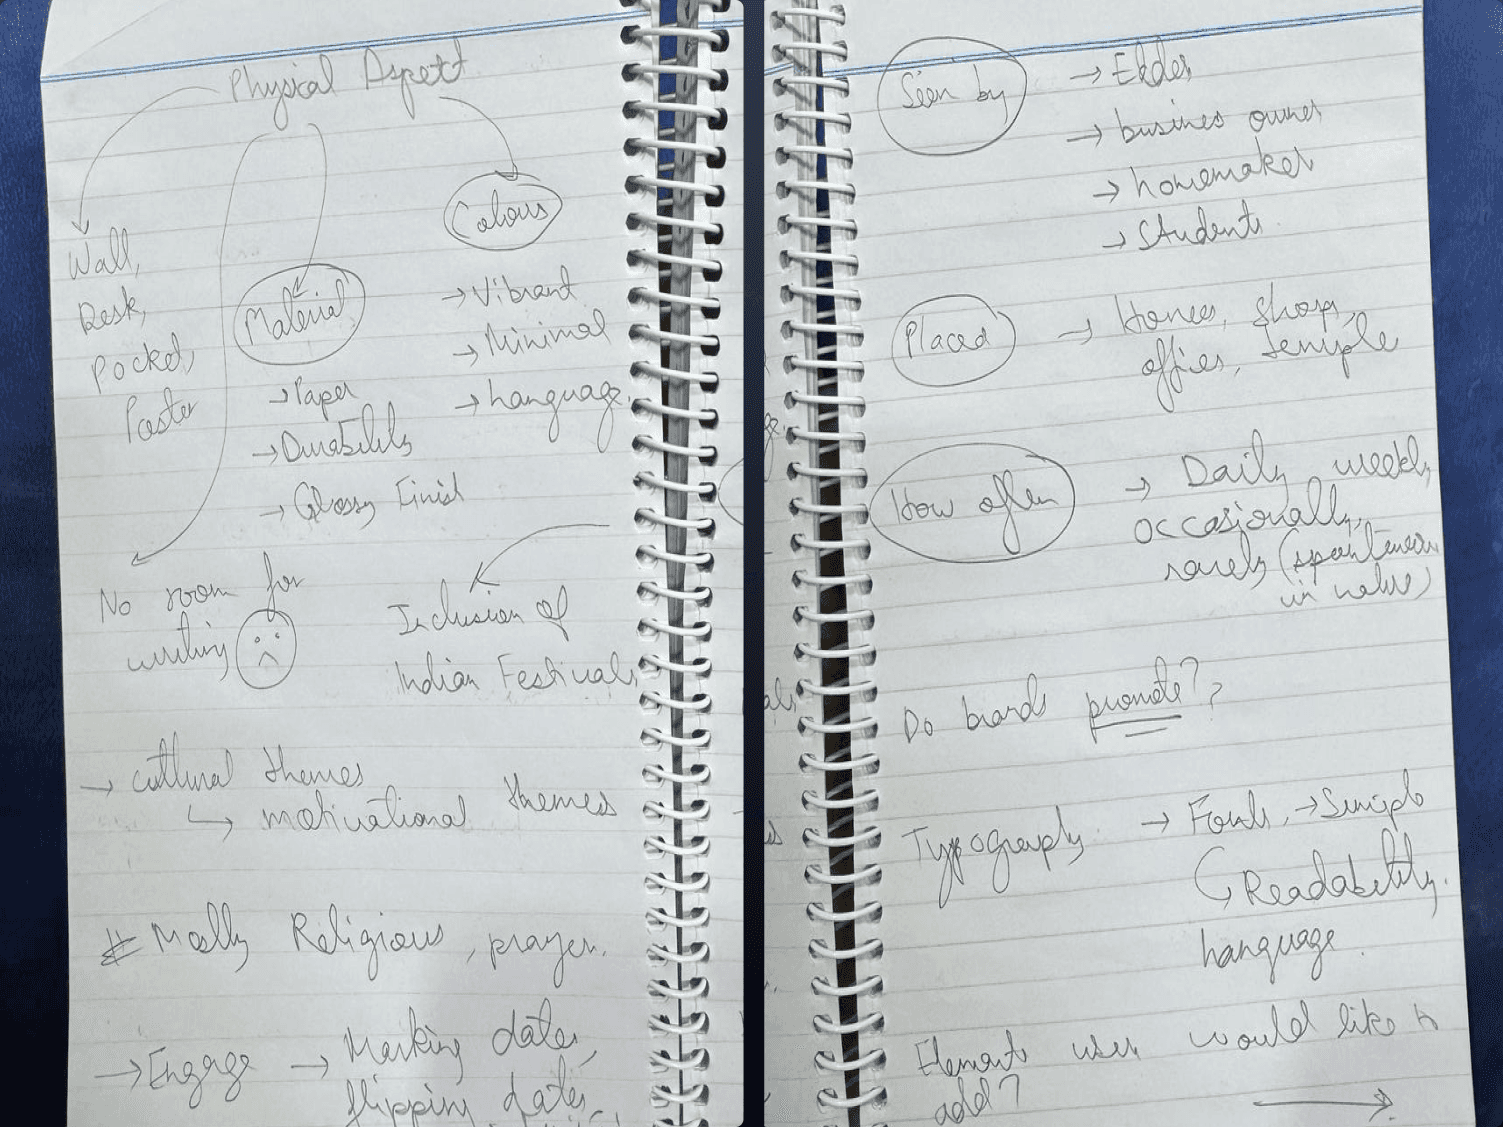 Physical Aspect
Wall,
Desk,
Pocked,
Poster
Material
→ Paper
→ Durability
→ Glossy Finish
Colours
→ Vibrant
→ Minimal
→ Language
No room for
writing
Inclusion of
Indian Festivals
→ cultural themes
↳ motivational themes
# Mostly Religious, prayer.
→ Engage → Marking dates,
flipping dates,
Seen by → Elder
→ busines owner
→ homemaker
→ Students
Placed → Homes, Shops,
offies, temple
How often → Daily weekly
occasionally,
rarely (spontaneous
in nature)
Do brands promote??
Typography → Fonts, → Simple
↳ Readability.
Language.
Elements user would like to
add?
→